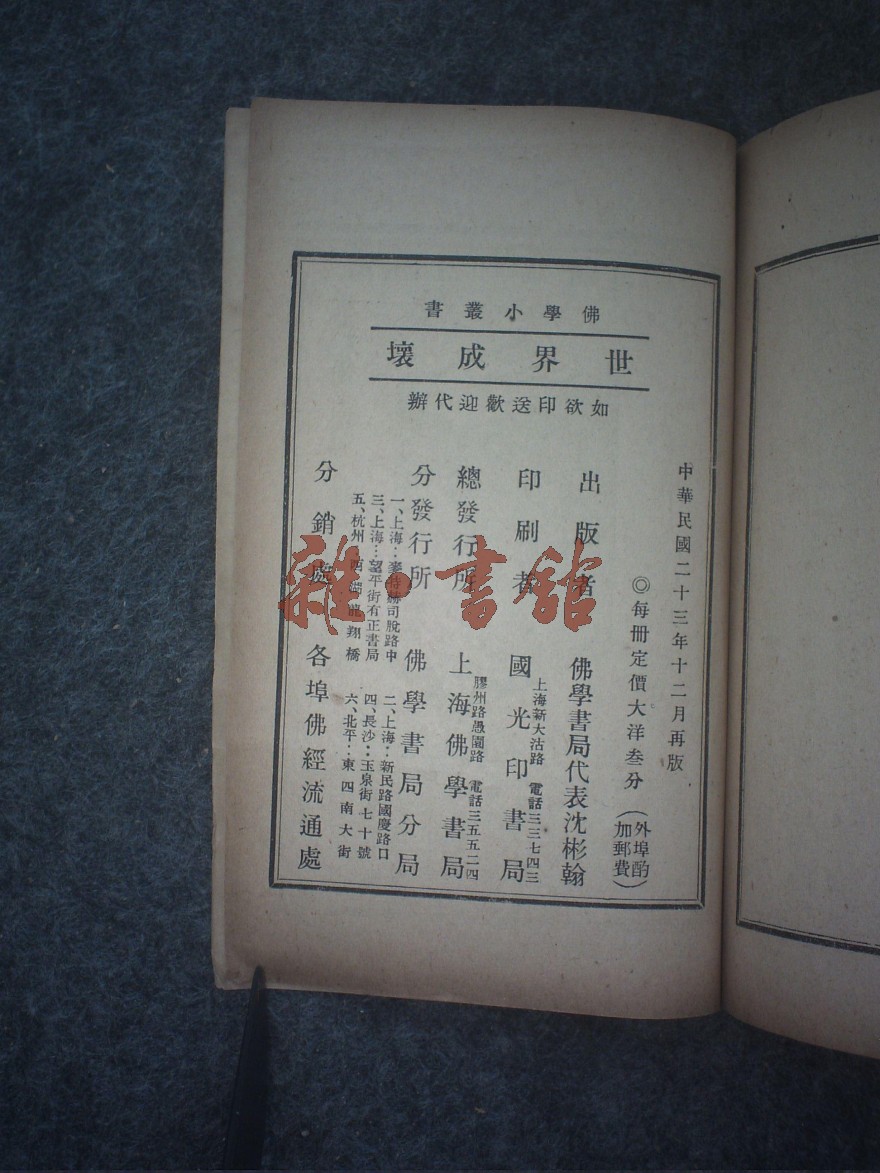 佛學小叢書
世界成壞
如欲印送歡迎代辦
中華民國二十三年十二月再版
◎每冊定價大洋叁分（外埠酌加郵費）
出版者　佛學書局代表沈彬翰
印刷者　國光印書局
上海新大沽路　電話三三七四三
總發行所　上海佛學書局
膠州路愚園路　電話三五五二四
分發行所　佛學書局分局
一、上海：麥特赫司脫路中
二、上海：新民路國慶路口
三、上海：望平街有正書局
四、長沙：玉泉街七十號
五、杭州：西湖龍翔橋
六、北平：東四南大街
分銷處　各埠佛經流通處
雜·書館